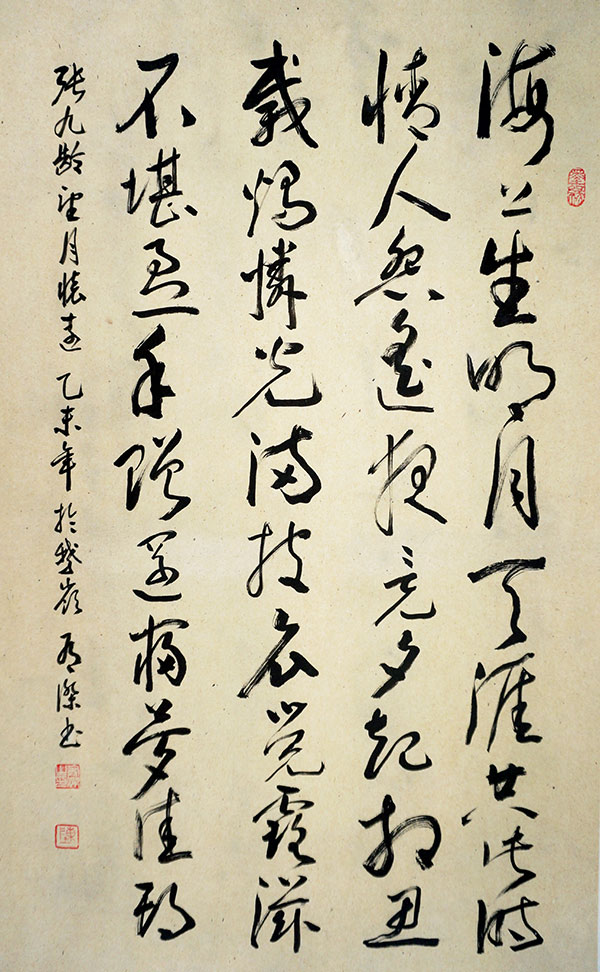 海上生明月天涯共此時
情人怨遙夜竟夕起相思
滅燭憐光滿披衣覺露滋
不堪盈手贈還寢夢佳期
張九齡望月懷遠 乙未年於鵞嶺 傑書